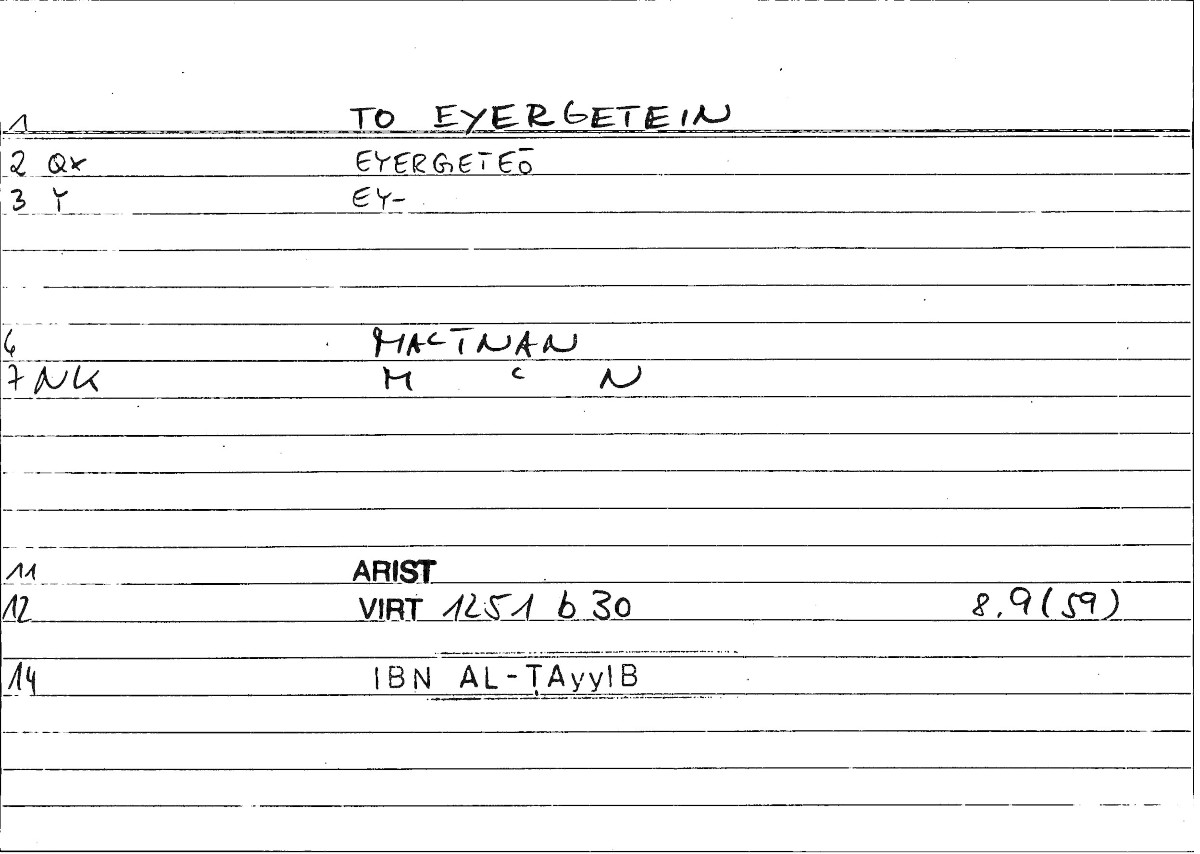 1 TO EYERGETEIN
2 Qx EYERGETEŌ
3 Y EY-
6 MAʿTNAN
7 NK M ʿ N
11 ARIST
12 VIRT 1251 b 30 8.9(59)
14 IBN AL-ṬAyyIB